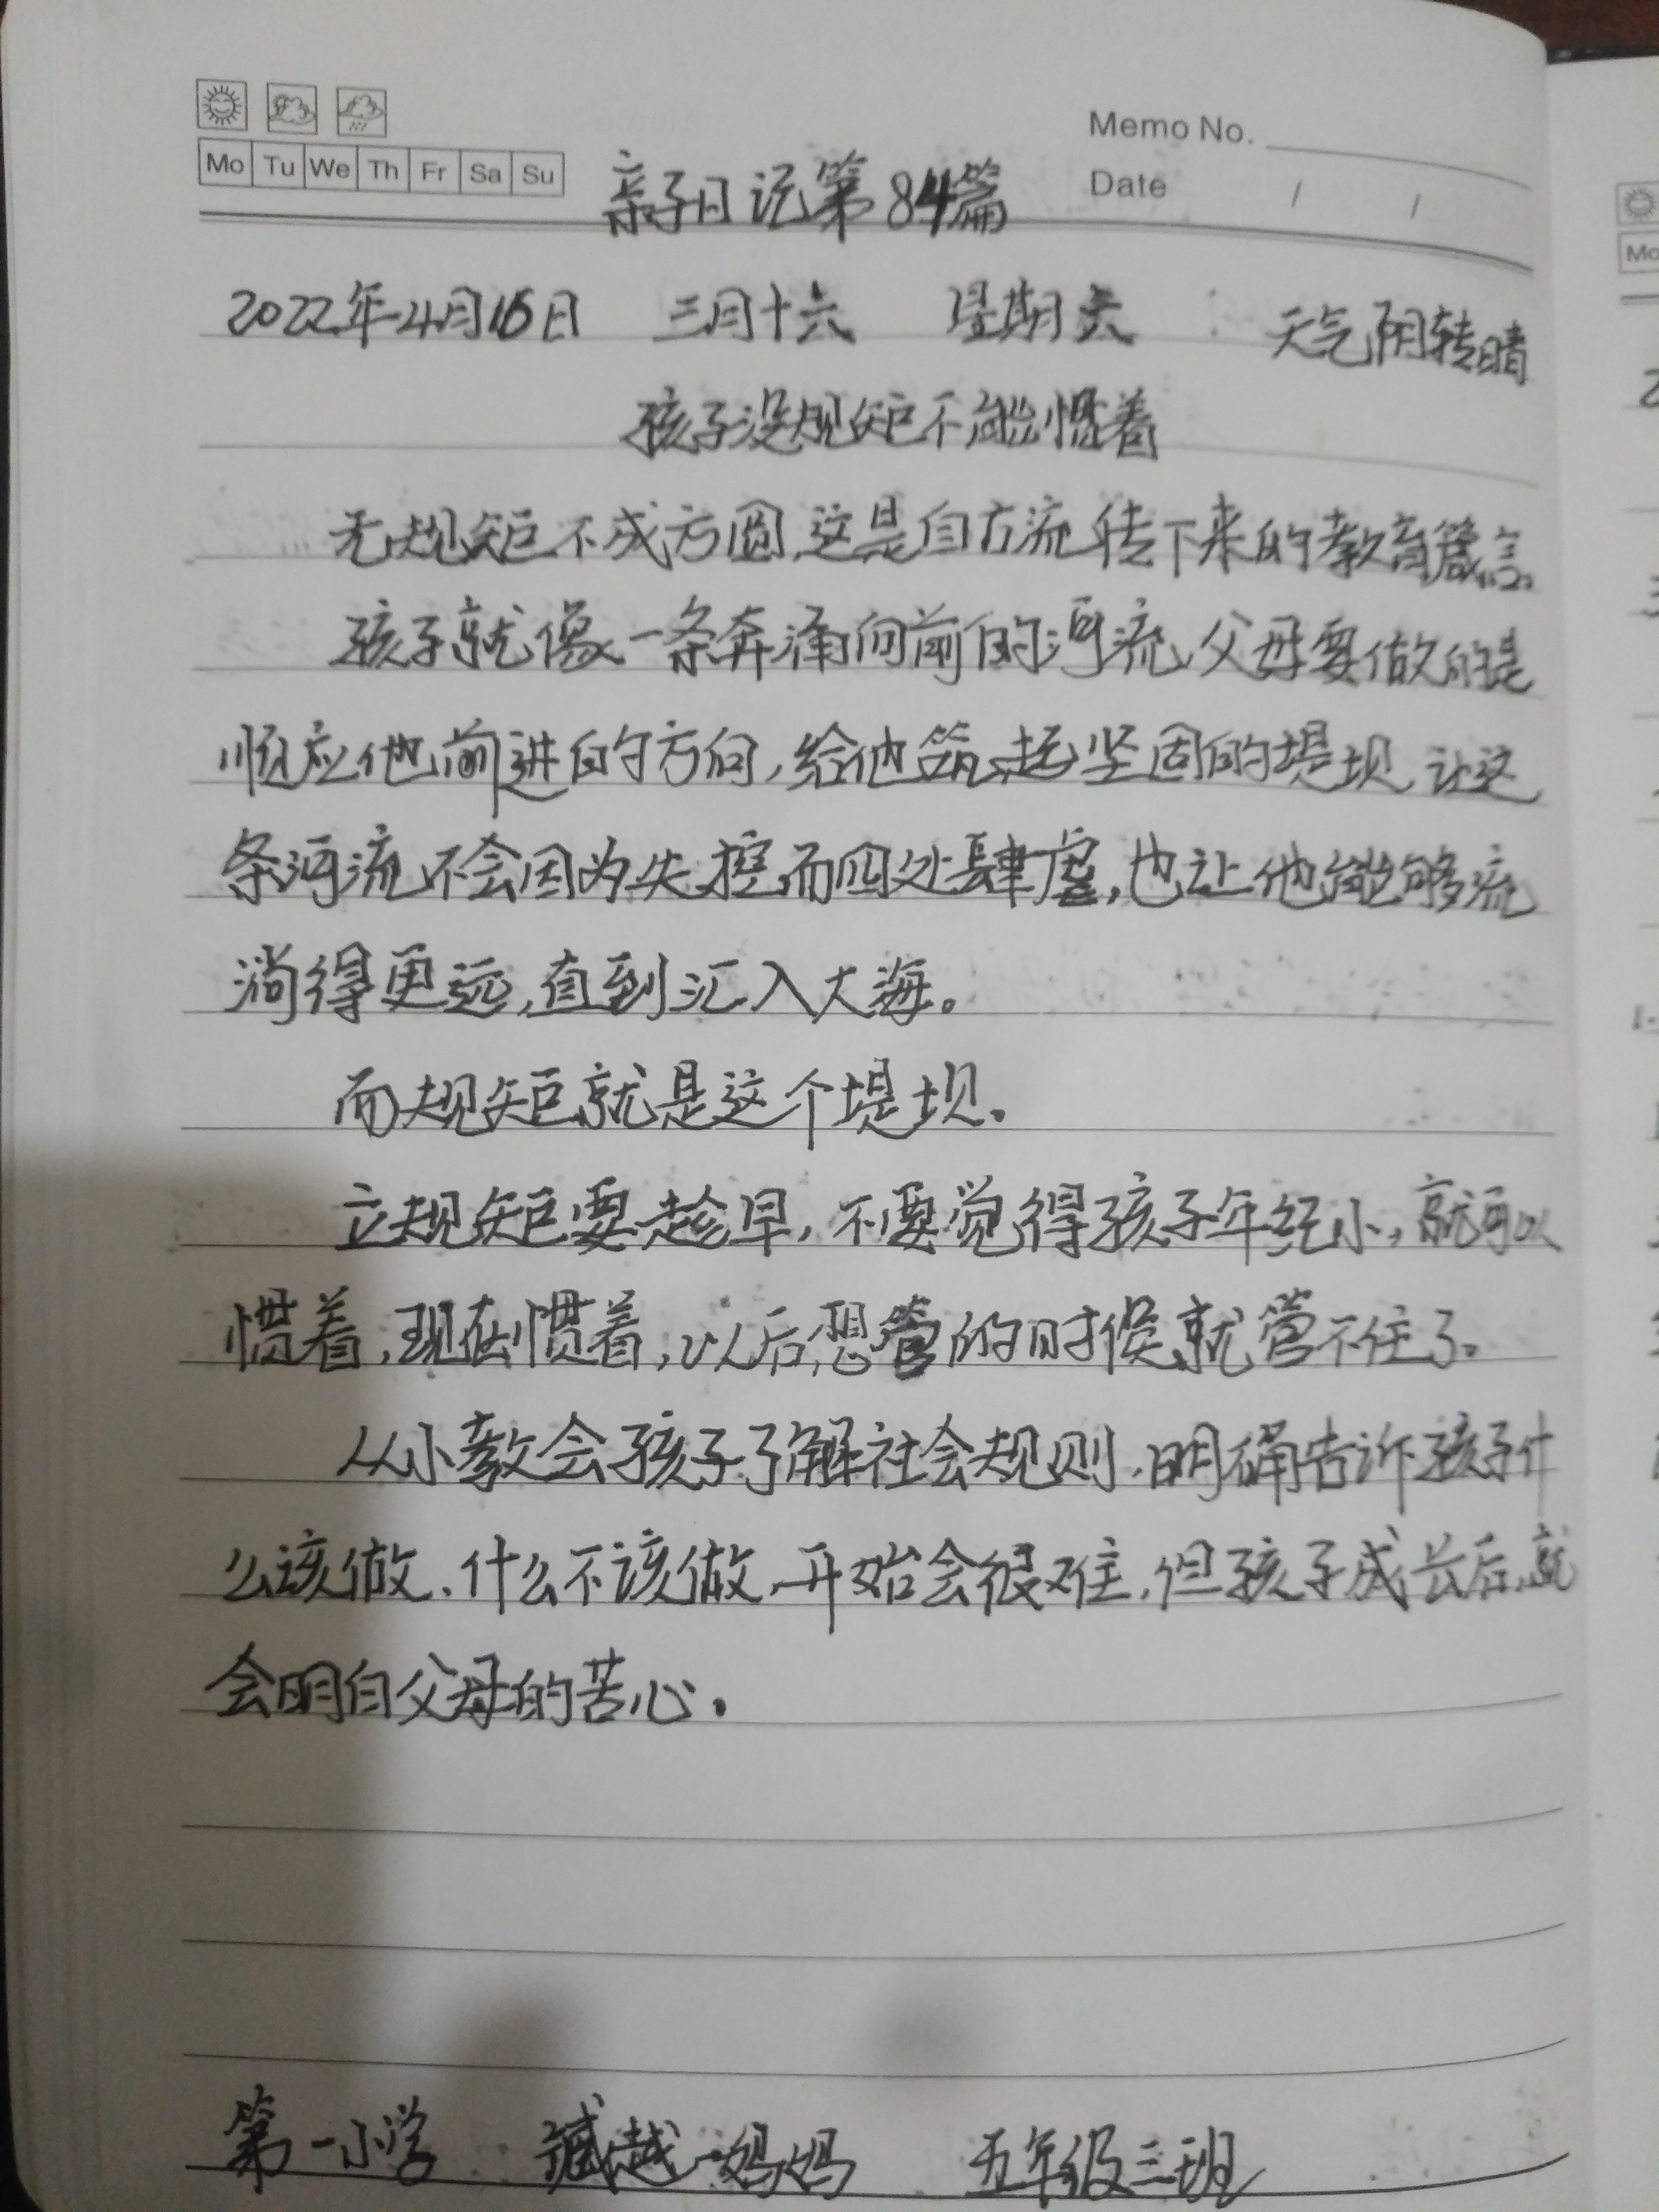 Mo Tu We Th Fr Sa Su
Memo No.
Date / /
亲子日记第84篇
2022年4月16日 三月十六 星期六 天气阴转晴
孩子没规矩不能惯着
无规矩不成方圆,这是自古流传下来的教育箴言。
孩子就像一条奔涌向前的河流,父母要做的是
顺应他前进的方向,给他筑起坚固的堤坝,让这
条河流不会因为失控而四处肆虐,也让他能够流
淌得更远,直到汇入大海。
而规矩就是这个堤坝。
立规矩要趁早,不要觉得孩子年纪小,就可以
惯着,现在惯着,以后想管的时候就管不住了。
从小教会孩子了解社会规则,明确告诉孩子什
么该做、什么不该做,开始会很难,但孩子成长后,就
会明白父母的苦心。
第一小学 越一妈妈 五年级三班
Mo